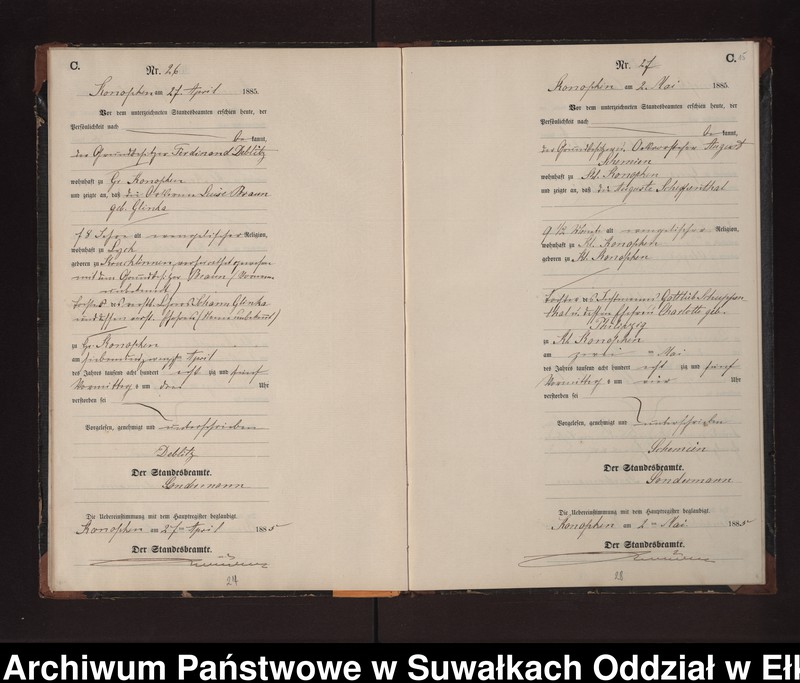 C.
Nr. 26
Konopken am 27. April 1885.
Vor dem unterzeichneten Standesbeamten erschien heute, der
Persönlichkeit nach
be kannt,
der Grundbesitzer Ferdinand Deblitz
wohnhaft zu Gr. Konopken
und zeigte an, daß die Luise Braun
geb. Glinka
78 Jahre alt evangelischer Religion,
wohnhaft zu Lyck
geboren zu verheirathet gewesen
mit dem Grundbesitzer Braun (Vorname
unbekannt)
Tochter des verst. Johann Glinka
und dessen verst. Ehefrau (Name unbekannt)
zu Gr. Konopken
am siebenundzwanzigsten April
des Jahres tausend acht hundert acht zig und fünf
Vormittag s um drei Uhr
verstorben sei
Vorgelesen, genehmigt und unterschrieben
Deblitz
Der Standesbeamte.
Sondermann
Die Uebereinstimmung mit dem Hauptregister beglaubigt.
Konopken am 27ten April 1885
Der Standesbeamte.
24
C.
Nr. 27
Konopken am 2. Mai 1885.
Vor dem unterzeichneten Standesbeamten erschien heute, der
Persönlichkeit nach
be kannt,
der August
Schemien
wohnhaft zu Kl. Konopken
und zeigte an, daß die Auguste
9 1/2 alt evangelischer Religion,
wohnhaft zu Kl. Konopken
geboren zu Kl. Konopken
Tochter des Gottlieb
und dessen Ehefrau Charlotte geb.
Philipzig
zu Kl. Konopken
am zwei ten Mai
des Jahres tausend acht hundert acht zig und fünf
Vormittag s um vier Uhr
verstorben sei
Vorgelesen, genehmigt und unterschrieben
Schemien
Der Standesbeamte.
Sondermann
Die Uebereinstimmung mit dem Hauptregister beglaubigt.
Konopken am 2ten Mai 1885
Der Standesbeamte.
Archiwum Państwowe w Suwałkach Oddział w Ełk